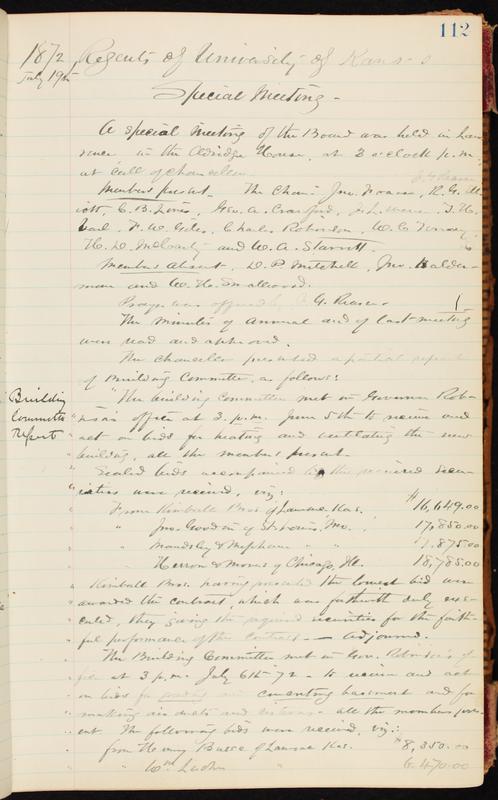 112
1872 Regents of University of Kansas
July 19th
Special Meeting -
A special meeting of the Board was held in Law
rence in the Aldridge House, at 3 o'clock p.m.
at call of chancellor.
Members present. The Chan. Jno. Fraser, R. G. Ell
iott, C. B. Lines, Geo. A. Crawford, T. H.
F. W. Giles, Charles Robinson, W. C. Tenney
and W. A. Starrett.
Members absent, D. P. Mitchell, Jno. Halder-
man and
Prayer was offered by G. Reaser
The minutes of annual and of last meeting
were read and approved.
The chancellor presented a partial report
of Building Committee, as follows:
Building
Committee
Report
"The building Committee met in Governor Rob-
inson's office at 3. p.m. June 5th to receive and
act on bids for heating and ventilating the new
building, all the members present.
Sealed bids accompanied by the required secu-
rities were received, viz:
From Kimball Bros. of Lawrence Kas. $16,649.00
" Jno. Goodwin of St Louis, Mo. 17,850.00
" "
" Herron & Morris of Chicago, Ill. 18,785.00
Kimball Bros. having presented the lowest bid were
awarded the contract, which was forthwith duly exe-
cuted, they giving the required securities for the faith-
ful performance of the contract. — Adjourned.
The Building Committee met in Gov. Robinson's of
fice at 3 p.m. July 6th 72 - to receive and act
on bids for cementing basement and for
making air ducts and cisterns - all the members pres-
ent. The following bids were received, viz:
from Henry Busse of Lawrence Kas. $8,350.00
" Wm " 6.470.00